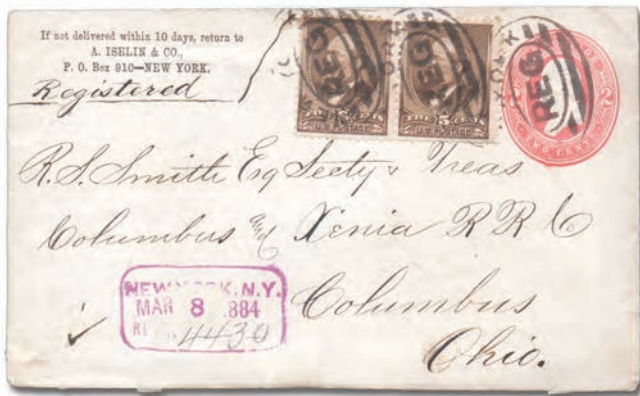 If not delivered within 10 days, return to
A. ISELIN & CO.,
P. O. Box 910—NEW YORK.
Registered
REG
REG
REG
U.S. POSTAGE
U.S. POSTAGE
2
TWO CENTS
R. S. Smith Esq Secty & Treas
Columbus and Xenia R R Co
Columbus
Ohio.
NEW YORK, N.Y.
MAR 8 1884
4430